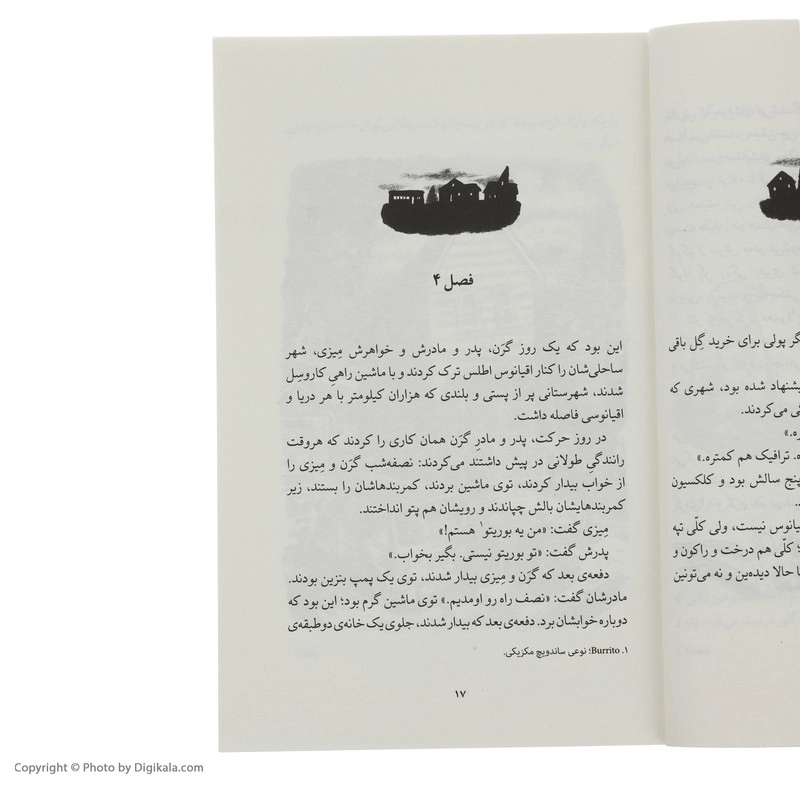 فصل ۴
این بود که یک روز گرَن، پدر و مادرش و خواهرش مِیزی، شهر
ساحلی‌شان را کنار اقیانوس اطلس ترک کردند و با ماشین راهیِ کاروسِل
شدند، شهرستانی پر از پستی و بلندی که هزاران کیلومتر با هر دریا و
اقیانوسی فاصله داشت.
در روز حرکت، پدر و مادرِ گرَن همان کاری را کردند که هروقت
رانندگیِ طولانی در پیش داشتند می‌کردند: نصفه‌شب گرَن و مِیزی را
از خواب بیدار کردند، توی ماشین بردند، کمربندهاشان را بستند، زیر
کمربندهایشان بالش چپاندند و رویشان هم پتو انداختند.
مِیزی گفت: «من یه بوریتو۱ هستم!»
پدرش گفت: «تو بوریتو نیستی. بگیر بخواب.»
دفعه‌ی بعد که گرَن و مِیزی بیدار شدند، توی یک پمپ بنزین بودند.
مادرشان گفت: «نصف راه رو اومدیم.» توی ماشین گرم بود؛ این بود که
دوباره خوابشان برد. دفعه‌ی بعد که بیدار شدند، جلوی یک خانه‌ی دوطبقه‌ی
۱. Burrito؛ نوعی ساندویچ مکزیکی.
۱۷
گر پولی برای خرید گِل باقی
یشنهاد شده بود، شهری که
می‌کردند.
ره.»
ه. ترافیک هم کمتره.»
پنج سالش بود و کلکسیون
یانوس نیست، ولی کلّی تپه
؛ کلّی هم درخت و راکون و
ا حالا دیده‌ین و نه می‌تونین
Copyright © Photo by Digikala.com